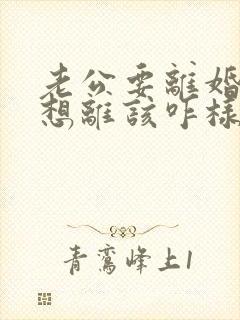 老公要離婚
想離該咋樣
青鸞峰上1